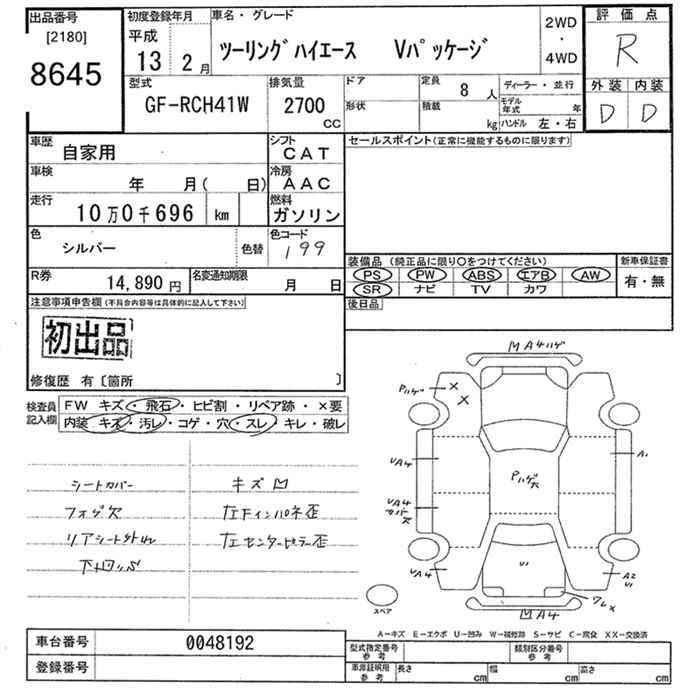 出品番号
[2180]
8645
初度登録年月
平成
13 2月
車名・グレード
ツーリングハイエース Vパッケージ
2WD
・
4WD
評価点
R
外装 内装
D D
型式
GF-RCH41W
排気量
2700
CC
ドア
形状
定員 8 人
積載 kg
ディーラー・並行
モデル年式 年
ハンドル 左・右
車歴
自家用
シフト
CAT
車検
年 月( 日)
冷房
AAC
走行
10万0千696 km
燃料
ガソリン
色
シルバー
色替
色コード
199
R券
14,890円
名変通知期限
月 日
セールスポイント(正常に機能するものに限ります)
装備品(純正品に限り○をつけてください)
PS PW ABS エアB AW
SR ナビ TV カワ
新車保証書
有・無
後日品
注意事項申告欄(不具合内容等は具体的に記入して下さい)
初出品
修復歴 有〔箇所 〕
検査員
記入欄
FW キズ・飛石・ヒビ割・リペア跡・×要
内装 キズ・汚レ・コゲ・穴・スレ・キレ・破レ
シートカバー
フォグ欠
リアシート外れ
下廻りサビ
キズ凹
左Fインパネ歪
左センターピラー歪
MA4ハゲ
Pハゲ
× ×
UA4
A1
Pハゲ欠
UA4
カバー欠
UA4
U1
A2
U1
ワレ×
凹A4
スペア
A−キズ E−エクボ U−凹み W−補修跡 S−サビ C−腐食 XX−交換済
車台番号
0048192
登録番号
型式指定番号
参考
類別区分番号
参考
車庫証明用
参考
長さ cm
幅 cm
高さ cm